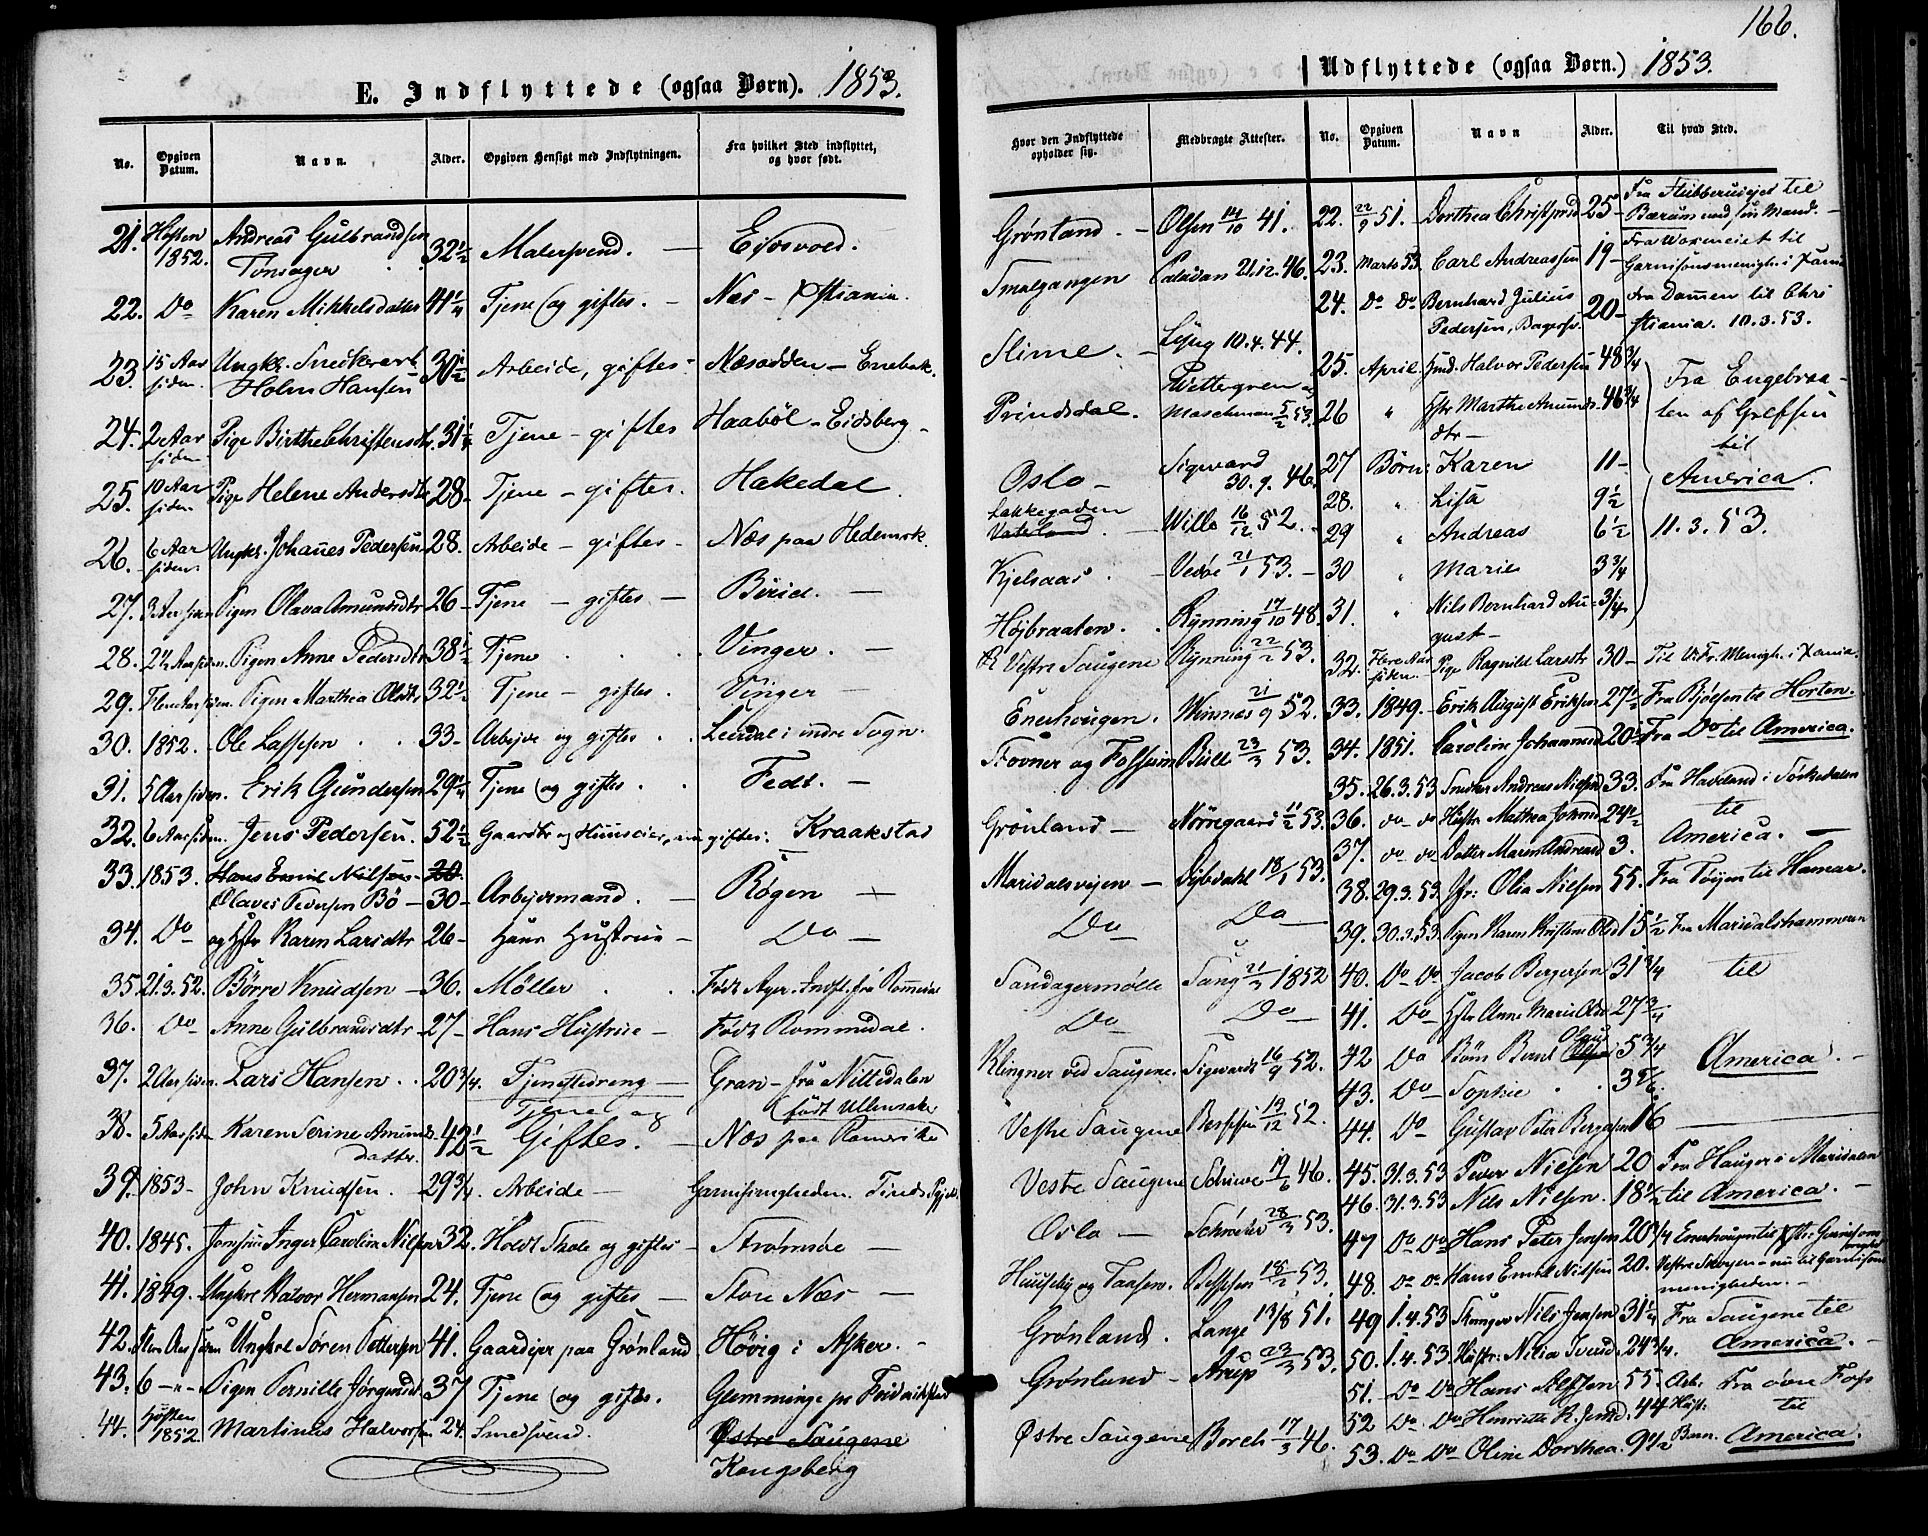 166.
E. Indflyttede (ogsaa Børn). 1853.
No. Opgiven Datum. Navn. Alder. Opgiven Hensigt med Indflytningen. Fra hvilket Sted indflyttet, og hvor født.
21. Høsten 1852. Andreas Gulbrandsen Tonsager 32½ Malersvend. Eidsvold.
22. Do Karen Mikkelsdatter 41¼ Tjene (og giftes. Næs - Xstiania.
23. 15 Aar siden. Ungk. Snedkerarb. Holm Hansen 30½ Arbeide, giftes - Næsodden - Enebak.
24. 2 Aar siden Pige Birthe Christensdtr. 31¼ Tjene - giftes Haabøl - Eidsberg -
25. 10 Aar siden Pige Helene Andersdtr 28. Tjene - giftes. Hakedal.
26. 6 Aar siden Ungk. Johanes Pedersen 28. Arbeide - giftes - Næs paa Hedemark.
27. 3 Aar siden Pigen Olava Amundsdtr 26 - Tjene - giftes - Birid.
28. 2½ Aar siden. Pigen Anne Pedersdtr 38½ Tjene Vinger. -
29. Flere Aar siden. Pigen Marthea Olsdtr 32½ Tjene - giftes. Vinger -
30. 1852. Ole Lassesen 33 - Arbejde og giftes Leirdal i indre Sogn.
31. 5 Aar siden. Erik Gundersen 29¼ Tjene (og giftes. Fedt. -
32. 6 Aar siden. Jens Pedersen. 52½ Gaardbr og Huuseier, giftes: Kraakstad
33. 1853. Hans Emil Nilsen - 20.
Olaves Pedersen Bö - 30 - Arbejdsmand. - Røgen
34. Do og Hstr Karen Larsdtr 26 - Hans Hustrue - Do -
35. 21.3.52. Börre Knudsen - 36. Møller Født Ager. Indfl. fra Romedal
36. Do Anne Gulbrandsdtr 27 - Hans Hustrue - Født Rommedal.
37. 2 Aar siden. Lars Hansen 20¾. Tjenestedreng - Gran - fra Nittedalen
(født Ullensaker
38. 5 Aar siden Karen Serine Amunds datter. 42½ Tjene og Giftes. - Næs paa Romerike
39. 1853 - John Knudsen. 29¾. Arbeide - Garnisonsmgheden. Tinds Pgjeld.
40. 1845. Jomfrue Inger Caroline Nilsen 32. Holdt Skole og giftes - Strömsöe -
41. 1849. Ungkrl Halvor Hermansen 24. Tjene (og giftes - Store Næs -
42. Flere Aar siden Ungkrl Sören Pettersen 41. Gaardejer paa Grønland Høvig i Asker. -
43. 6 - " - Pigen Pernille Jørgensdr 37 Tjene (og giftes. Glemminge pr Fredrikstad
44. Høsten 1852. Martinus Halvorsen 24. Smedsvend. Østre Saugene
Kongsberg
Udflyttede (ogsaa Børn.) 1853.
Hvor den Indflyttede opholder sig. Medbragte Attester. No. Opgiven Datum. Navn Alder. Til hvad Sted.
Grønland. - Olsen 14/10 41. 22. 22/9 51. Dorthea Christophd 25 - Fra Stubberudejet til Bærum med sin Mand. -
Smalgangen Paludan 21.12.46. 23. Marts 53. Carl Andreassen 19 - Fra Woxneiet til Garnisonsmenigh. i Xania
24. Do Do Bernhard Julius Pedersen, Bagersv. 20 - fra Dammen til Christiania. 10.3.53.
Slime. - Ljug 10.4.44. 25. April Ind. Halvor Pedersen 48¾
Prindsdal. Wettergren og Maschman 5/2 53. 26 " Hstr Marthe Amunds dtr - 46¾ Fra Engebraaten af Grefsen til
Oslo - Sigward 30.9.46. 27 Børn: Karen 11 - America.
Lakkegaden Vaterland. Wille 16/12 52. 28. " Lisa 9½
29 " Andreas 6½ 11.3.53.
Kjelsaas. Vedøe 21/1 53. - 30 " Marie 3¾
Højbraaten. Rynning 17/10 48. 31. " Nils Bernhard August - ¾
Vestre Saugene Rynning 22/2 53. 32. Flere Aar siden. Pige Ragnild Larsdtr 30 - Til V. Fr. Menigh. i Xania.
Enerhougen. Winsnæs 21/9 52. 33. 1849. Erik August Eriksen 27½ Fra Bjølsen til Horten.
Stovner og Fossum Bull 23/3 53. 34. 1851. Caroline Johannesd 20½ Fra Do til America.
35. 26.3.53. Snedker Andreas Nielsen 33. Fra Havland i Sørkedalen
Grønland - Nörregaard 11/2 53. 36. do - do Hustr. Mathea Johnsd 24½ til
37. do do Datter Maren Andreasd 3. America. -
Maridalsvejen - Dybdahl 18/1 53. 38. 29.3.53. Jfr: Olia Nielsen 55. Fra Tøyen til Hamar.
Do Do 39. 30.3.53. Pigen Karen Kirstine Olsd 15½ Fra Maridalshammeren
Sandagermølle Sang 21/3 1852 40. Do Do Jacob Bergersen 31¾ til
Do Do 41. Do Hstr Anne Marie Olsd 27¾
Klingner ved Saugene. Sigwardt 16/9 52. 42 Do Börn Bernt 5¾ America. -
43. Do Sophie 3
Vestre Saugene Bessesen 19/12 52. 44. Do Gustav Peter Bergersen 16
Vestre Saugene Schiwe 19/6 46. 45. 31.3.53 Peder Nielsen 20 Fra Hauger i Maridalen
46. 31.3.53 Nils Nielsen. 18½ til America. -
Oslo - Schröder 28/3 53. 47 Do Do Hans Peter Jensen 20¼ Enerhougen til Xst: Garnisons menighed
Huuseby og Taasen. Bessesen 18/2 53. 48. Do Do Hans Emil Nilsen 20. Vestre Skøyen - nu til Garnisons menigheden. -
Grønland. Lange 13/8 51. 49 1.4.53 Nils Jensen 31½ Fra Saugene til
Grønland - Arup 23/3 53. 50. 1.4.53 Hustr: Nilia Iversd. 24¾. America. -
51. Do Do Hans Nilssen 55. Arb. Fra övre Foss
Østre Saugene Borch 17/3 46. 52 Do. Do Henriette R. Jensd. 44 Hust: til
53. Do Do Oline Dorthea. 9½ Barn. America.